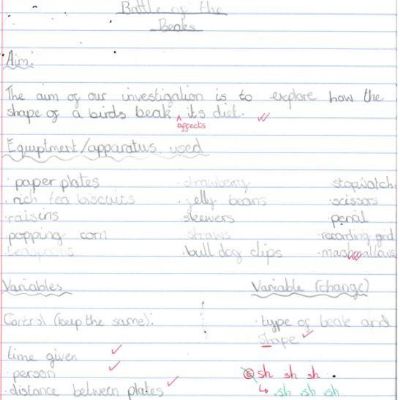 Battle of the
Beaks
Aim:
The aim of our investigation is to explore how the
shape of a birds beak ^ its diet.
affects
Equiptment/apparatus used
· paper plates · strawberry stopwatch
· rich tea biscuits · jelly beans · scissors
· raisins · skewers · pencil
· popping corn · straws · recording grid
· bull dog clips
Variables Variable (change)
Control (keep the same). · type of beak and
shape
time given
· person sh sh sh
· distance between plates sh sh sh